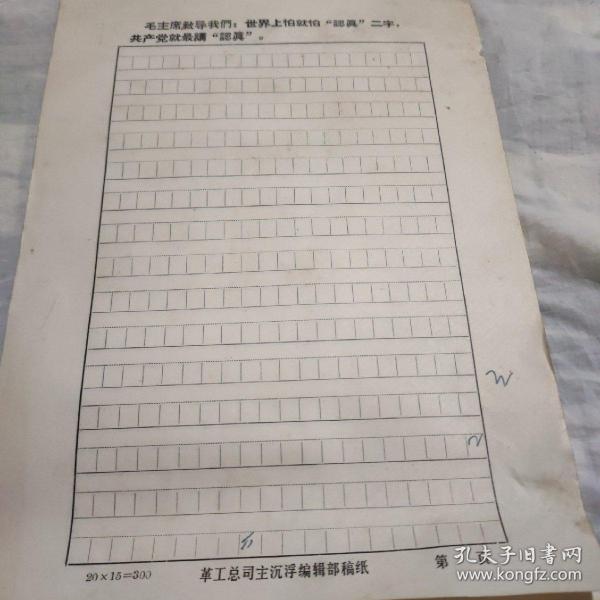 毛主席敎导我們：世界上怕就怕“認眞”二字，
共产党就最講“認眞”。
20×15=300
革工总司主沉浮编辑部稿纸
第
孔夫子旧书网
www.kongfz.com